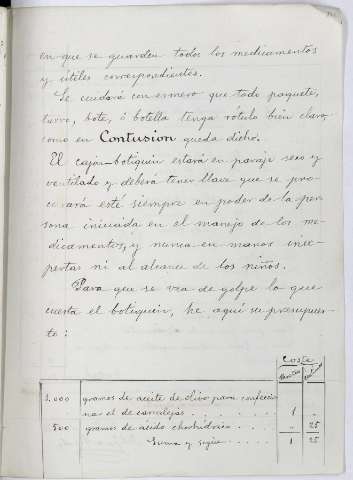 en que se guarden todos los medicamentos
y útiles correspondientes.
Se cuidará con esmero que todo paquete,
tarro, bote, ó botella tenga rótulo bien claro,
como en Contusion queda dicho.
El cajón-botiquin estará en paraje seco y
ventilado y deberá tener llave que se pro-
curará esté siempre en poder de la per-
sona iniciada en el manejo de los me-
dicamentos, y nunca en manos inex-
pertas ni al alcance de los niños.
Para que se vea de golpe lo que
cuesta el botiquin, he aquí su presupues-
to:
Coste
Pesetas
1.000 gramos de aceite de olivo para confeccio
nar el de carralejas . . . . . . 1 "
500 gramos de acido clorhidrico . . . " 25
Suma y sigue . . . . 1 25